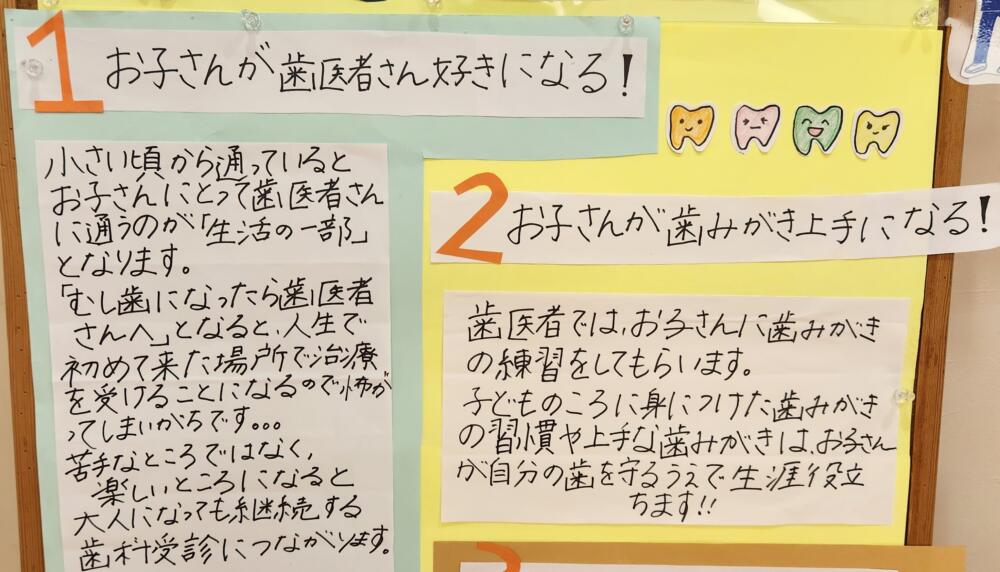 1 お子さんが歯医者さん好きになる!
小さい頃から通っていると
お子さんにとって歯医者さん
に通うのが「生活の一部」
となります。
「むし歯になったら歯医者
さんへ」となると、人生で
初めて来た場所で治療
を受けることになるので怖が
ってしまいがちです。。。
苦手なところではなく、
楽しいところになると
大人になっても継続する
歯科受診につながります。
2 お子さんが歯みがき上手になる!
歯医者では、お子さんに歯みがき
の練習をしてもらいます。
子どものころに身につけた歯みがき
の習慣や上手な歯みがきは、お子さん
が自分の歯を守るうえで生涯役立
ちます!!